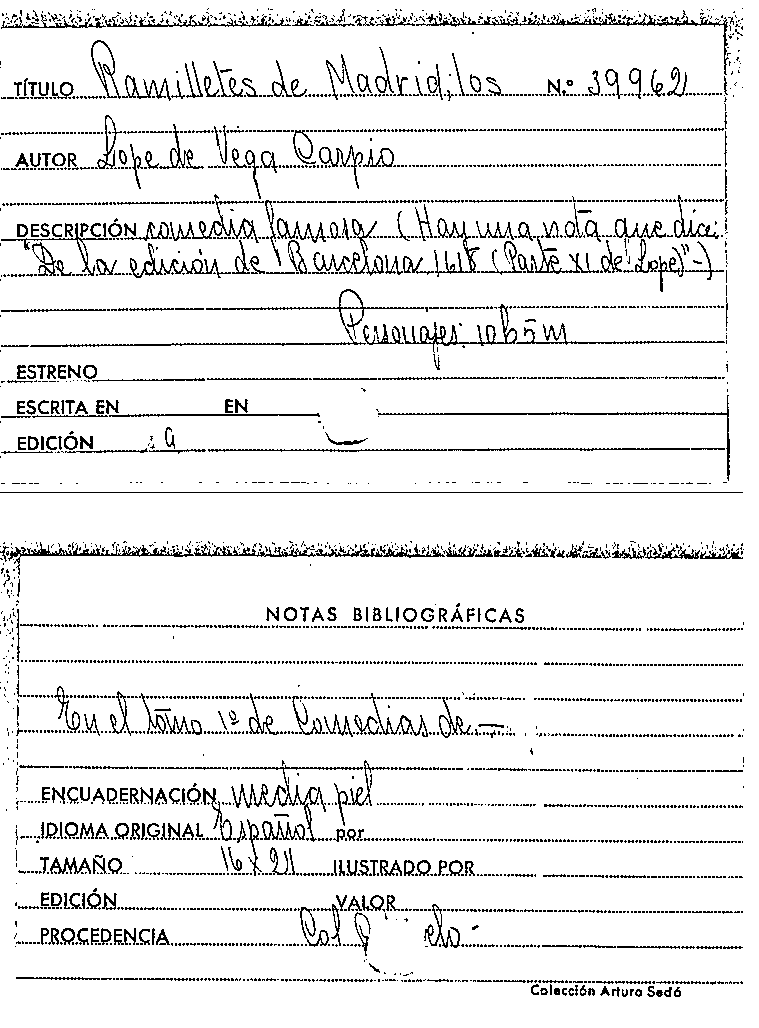 TÍTULO Ramilletes de Madrid, los N.º 39962
AUTOR Lope de Vega Carpio
DESCRIPCIÓN comedia famosa (Hay una nota que dice
"De la edición de Barcelona 1618 (Parte XI de Lope)"-)
Personajes: 10h5m
ESTRENO
ESCRITA EN EN
EDICIÓN
NOTAS BIBLIOGRÁFICAS
En el tomo 1º de Comedias de —
ENCUADERNACIÓN media piel
IDIOMA ORIGINAL Español por
TAMAÑO 16 x 21 ILUSTRADO POR
EDICIÓN VALOR
PROCEDENCIA Col
Colección Arturo Sedó